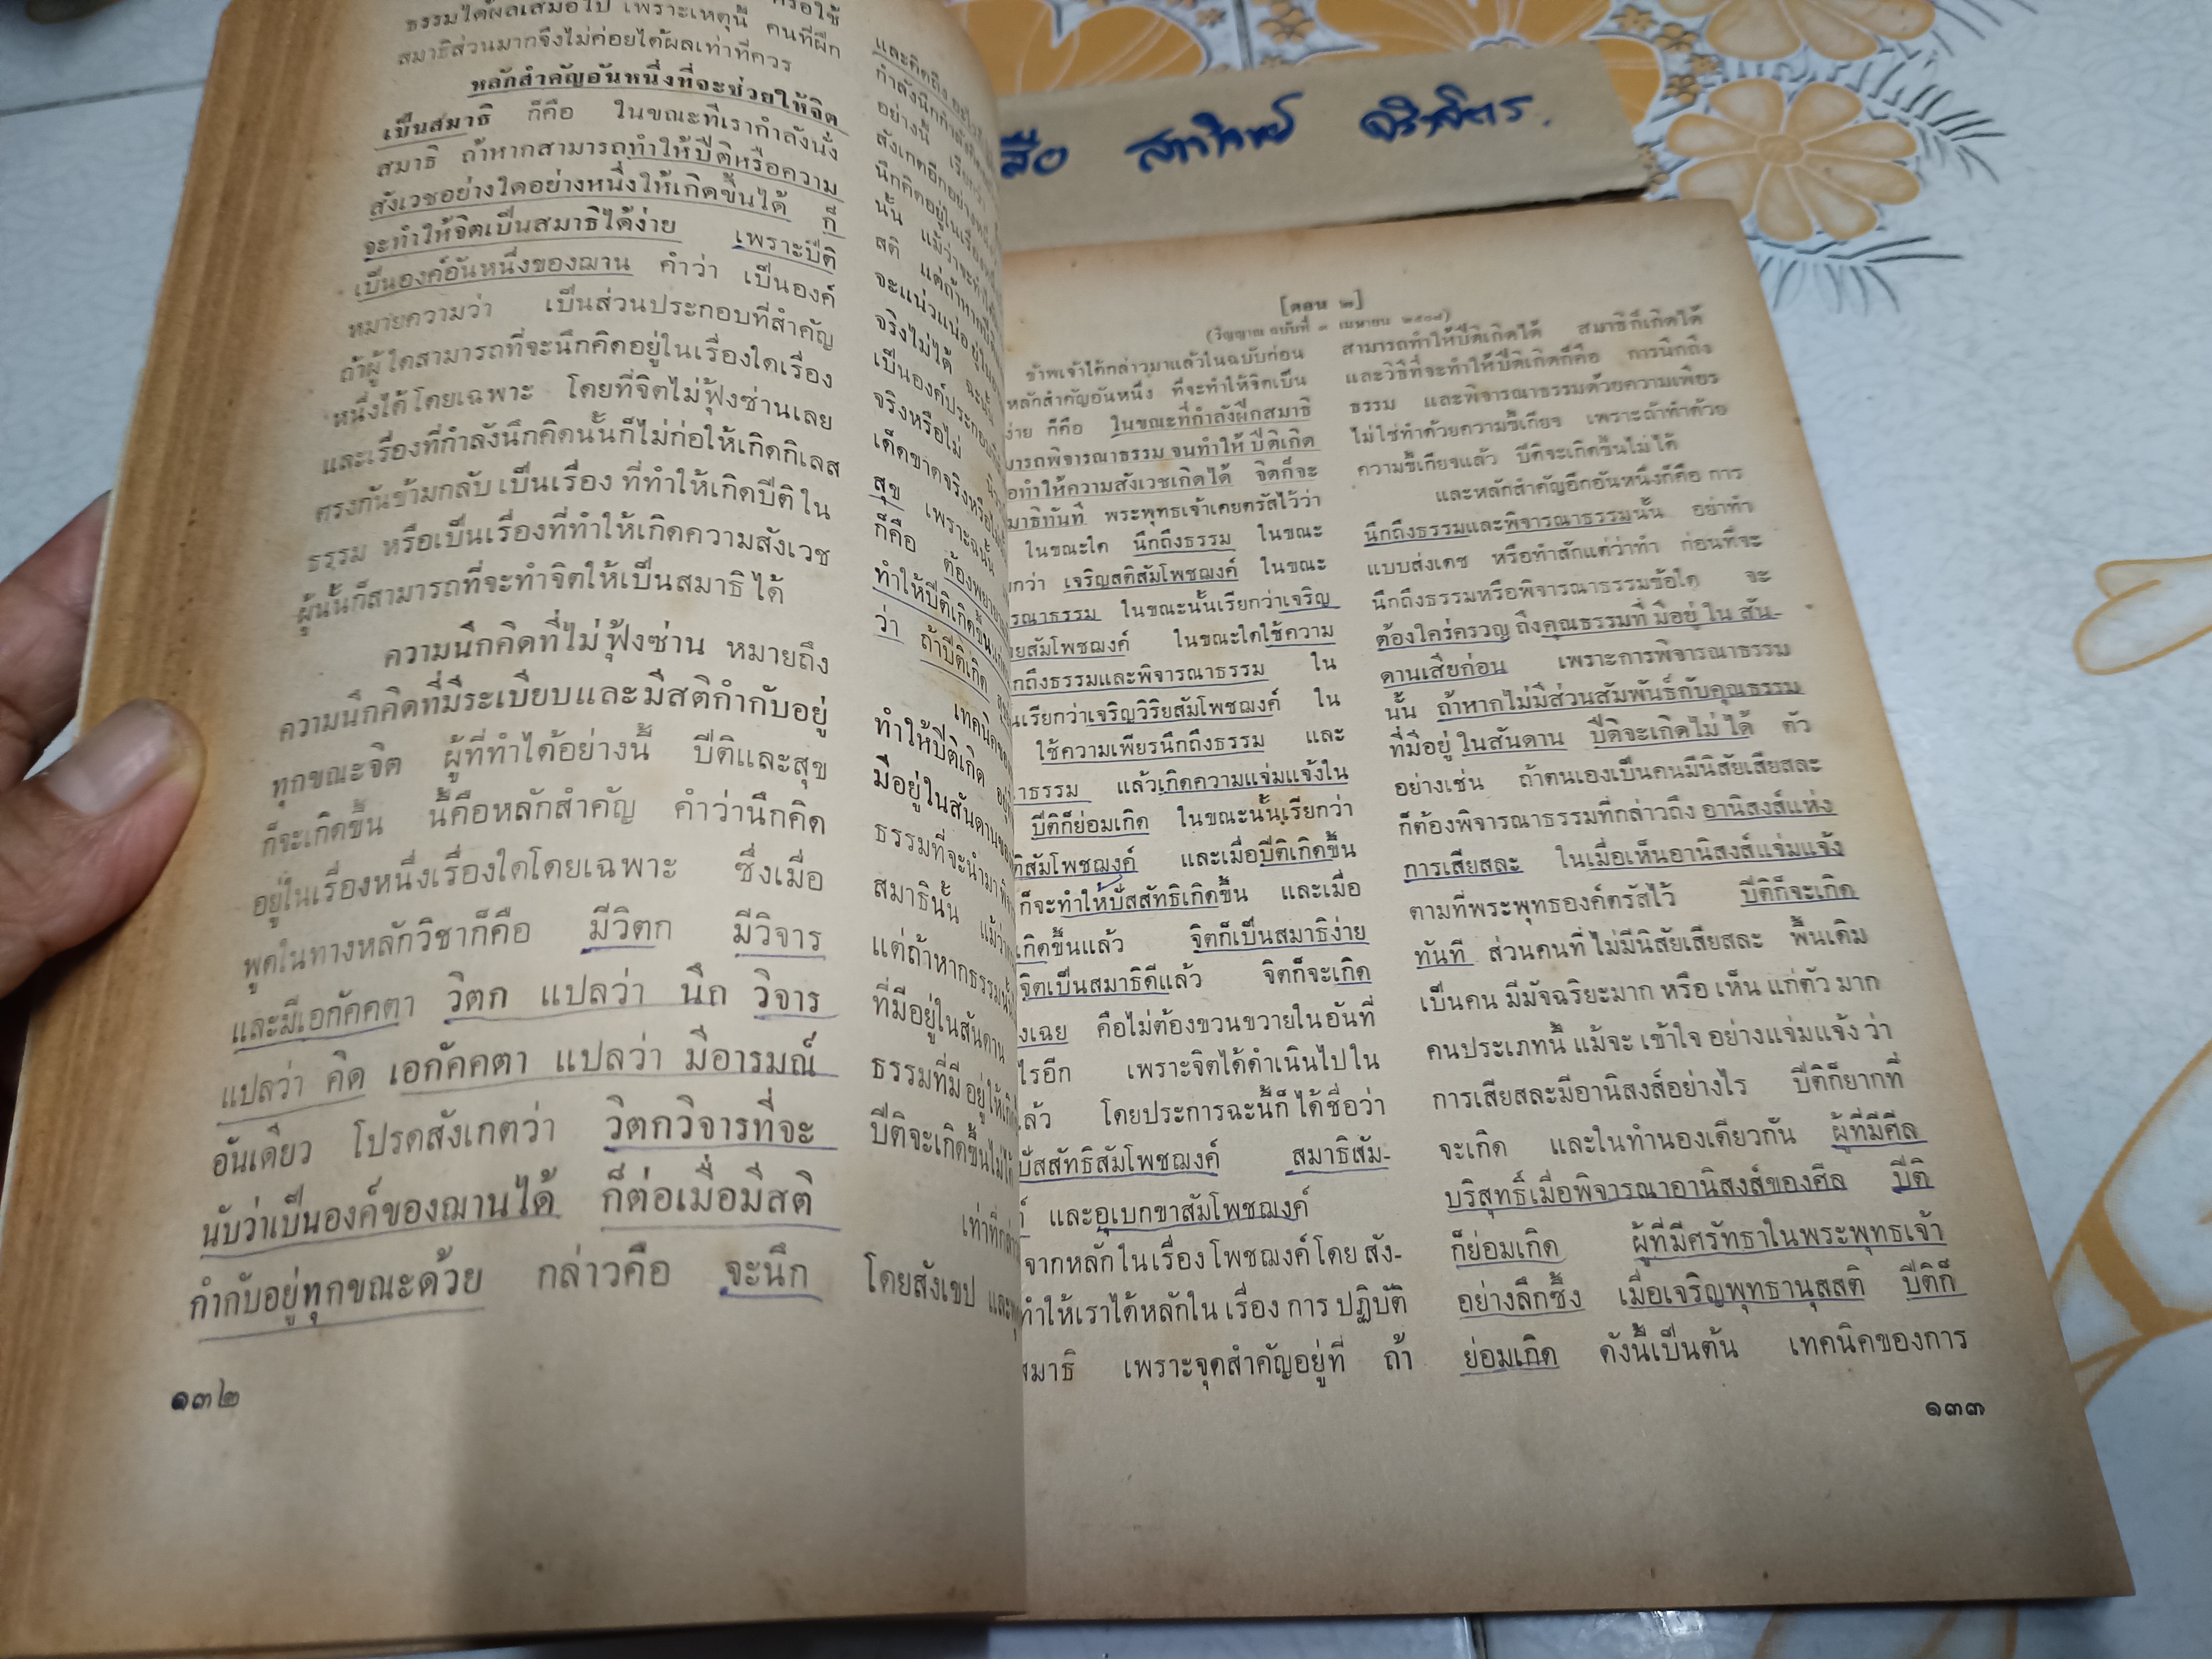 ธรรมได้ผลเสมอไป เพราะเหตุนี้ คนที่ฝึก
สมาธิส่วนมากจึงไม่ค่อยได้ผลเท่าที่ควร
หลักสำคัญอันหนึ่งที่จะช่วยให้จิต
เป็นสมาธิ ก็คือ ในขณะที่เรากำลังนั่ง
สมาธิ ถ้าหากสามารถทำให้ปีติหรือความ
สังเวชอย่างใดอย่างหนึ่งให้เกิดขึ้นได้ ก็
จะทำให้จิตเป็นสมาธิได้ง่าย เพราะปีติ
เป็นองค์อันหนึ่งของฌาน คำว่า เป็นองค์
หมายความว่า เป็นส่วนประกอบที่สำคัญ
ถ้าผู้ใดสามารถที่จะนึกคิดอยู่ในเรื่องใดเรื่อง
หนึ่งได้โดยเฉพาะ โดยที่จิตไม่ฟุ้งซ่านเลย
และเรื่องที่กำลังนึกคิดนั้นก็ไม่ก่อให้เกิดกิเลส
ตรงกันข้ามกลับ เป็นเรื่อง ที่ทำให้เกิดปีติ ใน
ธรรม หรือเป็นเรื่องที่ทำให้เกิดความสังเวช
ผู้นั้นก็สามารถที่จะทำจิตให้เป็นสมาธิ ได้
ความนึกคิดที่ไม่ฟุ้งซ่าน หมายถึง
ความนึกคิดที่มีระเบียบและมีสติกำกับอยู่
ทุกขณะจิต ผู้ที่ทำได้อย่างนี้ ปีติและสุข
ก็จะเกิดขึ้น นี้คือหลักสำคัญ คำว่านึกคิด
อยู่ในเรื่องหนึ่งเรื่องใดโดยเฉพาะ ซึ่งเมื่อ
พูดในทางหลักวิชาก็คือ มีวิตก มีวิจาร
และมีเอกัคคตา วิตก แปลว่า นึก วิจาร
แปลว่า คิด เอกัคคตา แปลว่า มีอารมณ์
อันเดียว โปรดสังเกตว่า วิตกวิจารที่จะ
นับว่าเป็นองค์ของฌานได้ ก็ต่อเมื่อมีสติ
กำกับอยู่ทุกขณะด้วย กล่าวคือ จะนึก
๑๓๒
และคิดถึง
กำลังนึกกำลังคิด
อย่างนี้ เรียกว่า
สังเกตอีกอย่างหนึ่ง
นึกคิดอยู่ในเรื่อง
นั้น แม้ว่าจะ
สติ แต่ถ้าหาก
จะแน่วแน่อยู่ใน
จริงไม่ได้ ฉะนั้น
เป็นองค์ประกอบ
จริงหรือไม่
เด็ดขาดจริงหรือไม่
สุข เพราะฉะนั้น
ก็คือ ต้องพยายาม
ทำให้ปีติเกิดขึ้น
ว่า ถ้าปีติเกิด
เทคนิคของ
ทำให้ปีติเกิด อยู่ที่
มีอยู่ในสันดานของ
ธรรมที่จะนำมา
สมาธินั้น แม้ว่า
แต่ถ้าหากธรรมนั้น
ที่มีอยู่ในสันดาน
ธรรมที่มี อยู่ให้เกิด
ปีติจะเกิดขึ้นไม่ได้
เท่าที่กล่าว
โดยสังเขป และ
สือ
[ตอน ๒]
(วิญญาณ ฉบับที่ ๓ เมษายน ๒๕๐๘)
ข้าพเจ้าได้กล่าวมาแล้วในฉบับก่อน
หลักสำคัญอันหนึ่ง ที่จะทำให้จิตเป็น
ง่าย ก็คือ ในขณะที่กำลังฝึกสมาธิ
มารถพิจารณาธรรม จนทำให้ ปีติเกิด
อทำให้ความสังเวชเกิดได้ จิตก็จะ
มาธิทันที พระพุทธเจ้าเคยตรัสไว้ว่า
ในขณะใด นึกถึงธรรม ในขณะ
ยกว่า เจริญสติสัมโพชฌงค์ ในขณะ
รณาธรรม ในขณะนั้นเรียกว่าเจริญ
ยสัมโพชฌงค์ ในขณะใดใช้ความ
กถึงธรรมและพิจารณาธรรม ใน
นเรียกว่าเจริญวิริยสัมโพชฌงค์ ใน
ใช้ความเพียรนึกถึงธรรม และ
าธรรม แล้วเกิดความแจ่มแจ้งใน
ปีติก็ย่อมเกิด ในขณะนั้นเรียกว่า
ติสัมโพชฌงค์ และเมื่อปีติเกิดขึ้น
ก็จะทำให้ปัสสัทธิเกิดขึ้น และเมื่อ
เกิดขึ้นแล้ว จิตก็เป็นสมาธิง่าย
จิตเป็นสมาธิดีแล้ว จิตก็จะเกิด
งเฉย คือไม่ต้องขวนขวายในอันที่
ไรอีก เพราะจิตได้ดำเนินไปใน
ล้ว โดยประการฉะนี้ก็ ได้ชื่อว่า
ปัสสัทธิสัมโพชฌงค์ สมาธิสัม-
์ และอุเบกขาสัมโพชฌงค์
จากหลักในเรื่อง โพชฌงค์ โดย สัง-
ทำให้เราได้หลักใน เรื่อง การ ปฏิบัติ
มาธิ เพราะจุดสำคัญอยู่ที่ ถ้า
สามารถทำให้ปีติเกิดได้ สมาธิก็เกิดได้
และวิธีที่จะทำให้ปีติเกิดก็คือ การนึกถึง
ธรรม และพิจารณาธรรมด้วยความเพียร
ไม่ใช่ทำด้วยความขี้เกียจ เพราะถ้าทำด้วย
ความขี้เกียจแล้ว ปีติจะเกิดขึ้นไม่ได้
และหลักสำคัญอีกอันหนึ่งก็คือ การ
นึกถึงธรรมและพิจารณาธรรมนั้น อย่าทำ
แบบส่งเดช หรือทำสักแต่ว่าทำ ก่อนที่จะ
นึกถึงธรรมหรือพิจารณาธรรมข้อใด จะ
ต้องใคร่ครวญ ถึงคุณธรรมที่ มีอยู่ ใน สัน-
ดานเสียก่อน เพราะการพิจารณาธรรม
นั้น ถ้าหากไม่มีส่วนสัมพันธ์กับคุณธรรม
ที่มีอยู่ ในสันดาน ปีติจะเกิดไม่ ได้ ตัว
อย่างเช่น ถ้าตนเองเป็นคนมีนิสัยเสียสละ
ก็ต้องพิจารณาธรรมที่กล่าวถึง อานิสงส์แห่ง
การเสียสละ ในเมื่อเห็นอานิสงส์แจ่มแจ้ง
ตามที่พระพุทธองค์ตรัสไว้ ปีติก็จะเกิด
ทันที ส่วนคนที่ ไม่มีนิสัยเสียสละ พื้นเดิม
เป็นคน มีมัจฉริยะมาก หรือ เห็น แก่ตัว มาก
คนประเภทนี้ แม้จะ เข้าใจ อย่างแจ่มแจ้ง ว่า
การเสียสละมีอานิสงส์อย่างไร ปีติก็ยากที่
จะเกิด และในทำนองเดียวกัน ผู้ที่มีศีล
บริสุทธิ์เมื่อพิจารณาอานิสงส์ของศีล ปีติ
ก็ย่อมเกิด ผู้ที่มีศรัทธาในพระพุทธเจ้า
อย่างลึกซึ้ง เมื่อเจริญพุทธานุสสติ ปีติก็
ย่อมเกิด ดังนี้เป็นต้น เทคนิคของการ
๑๓๓